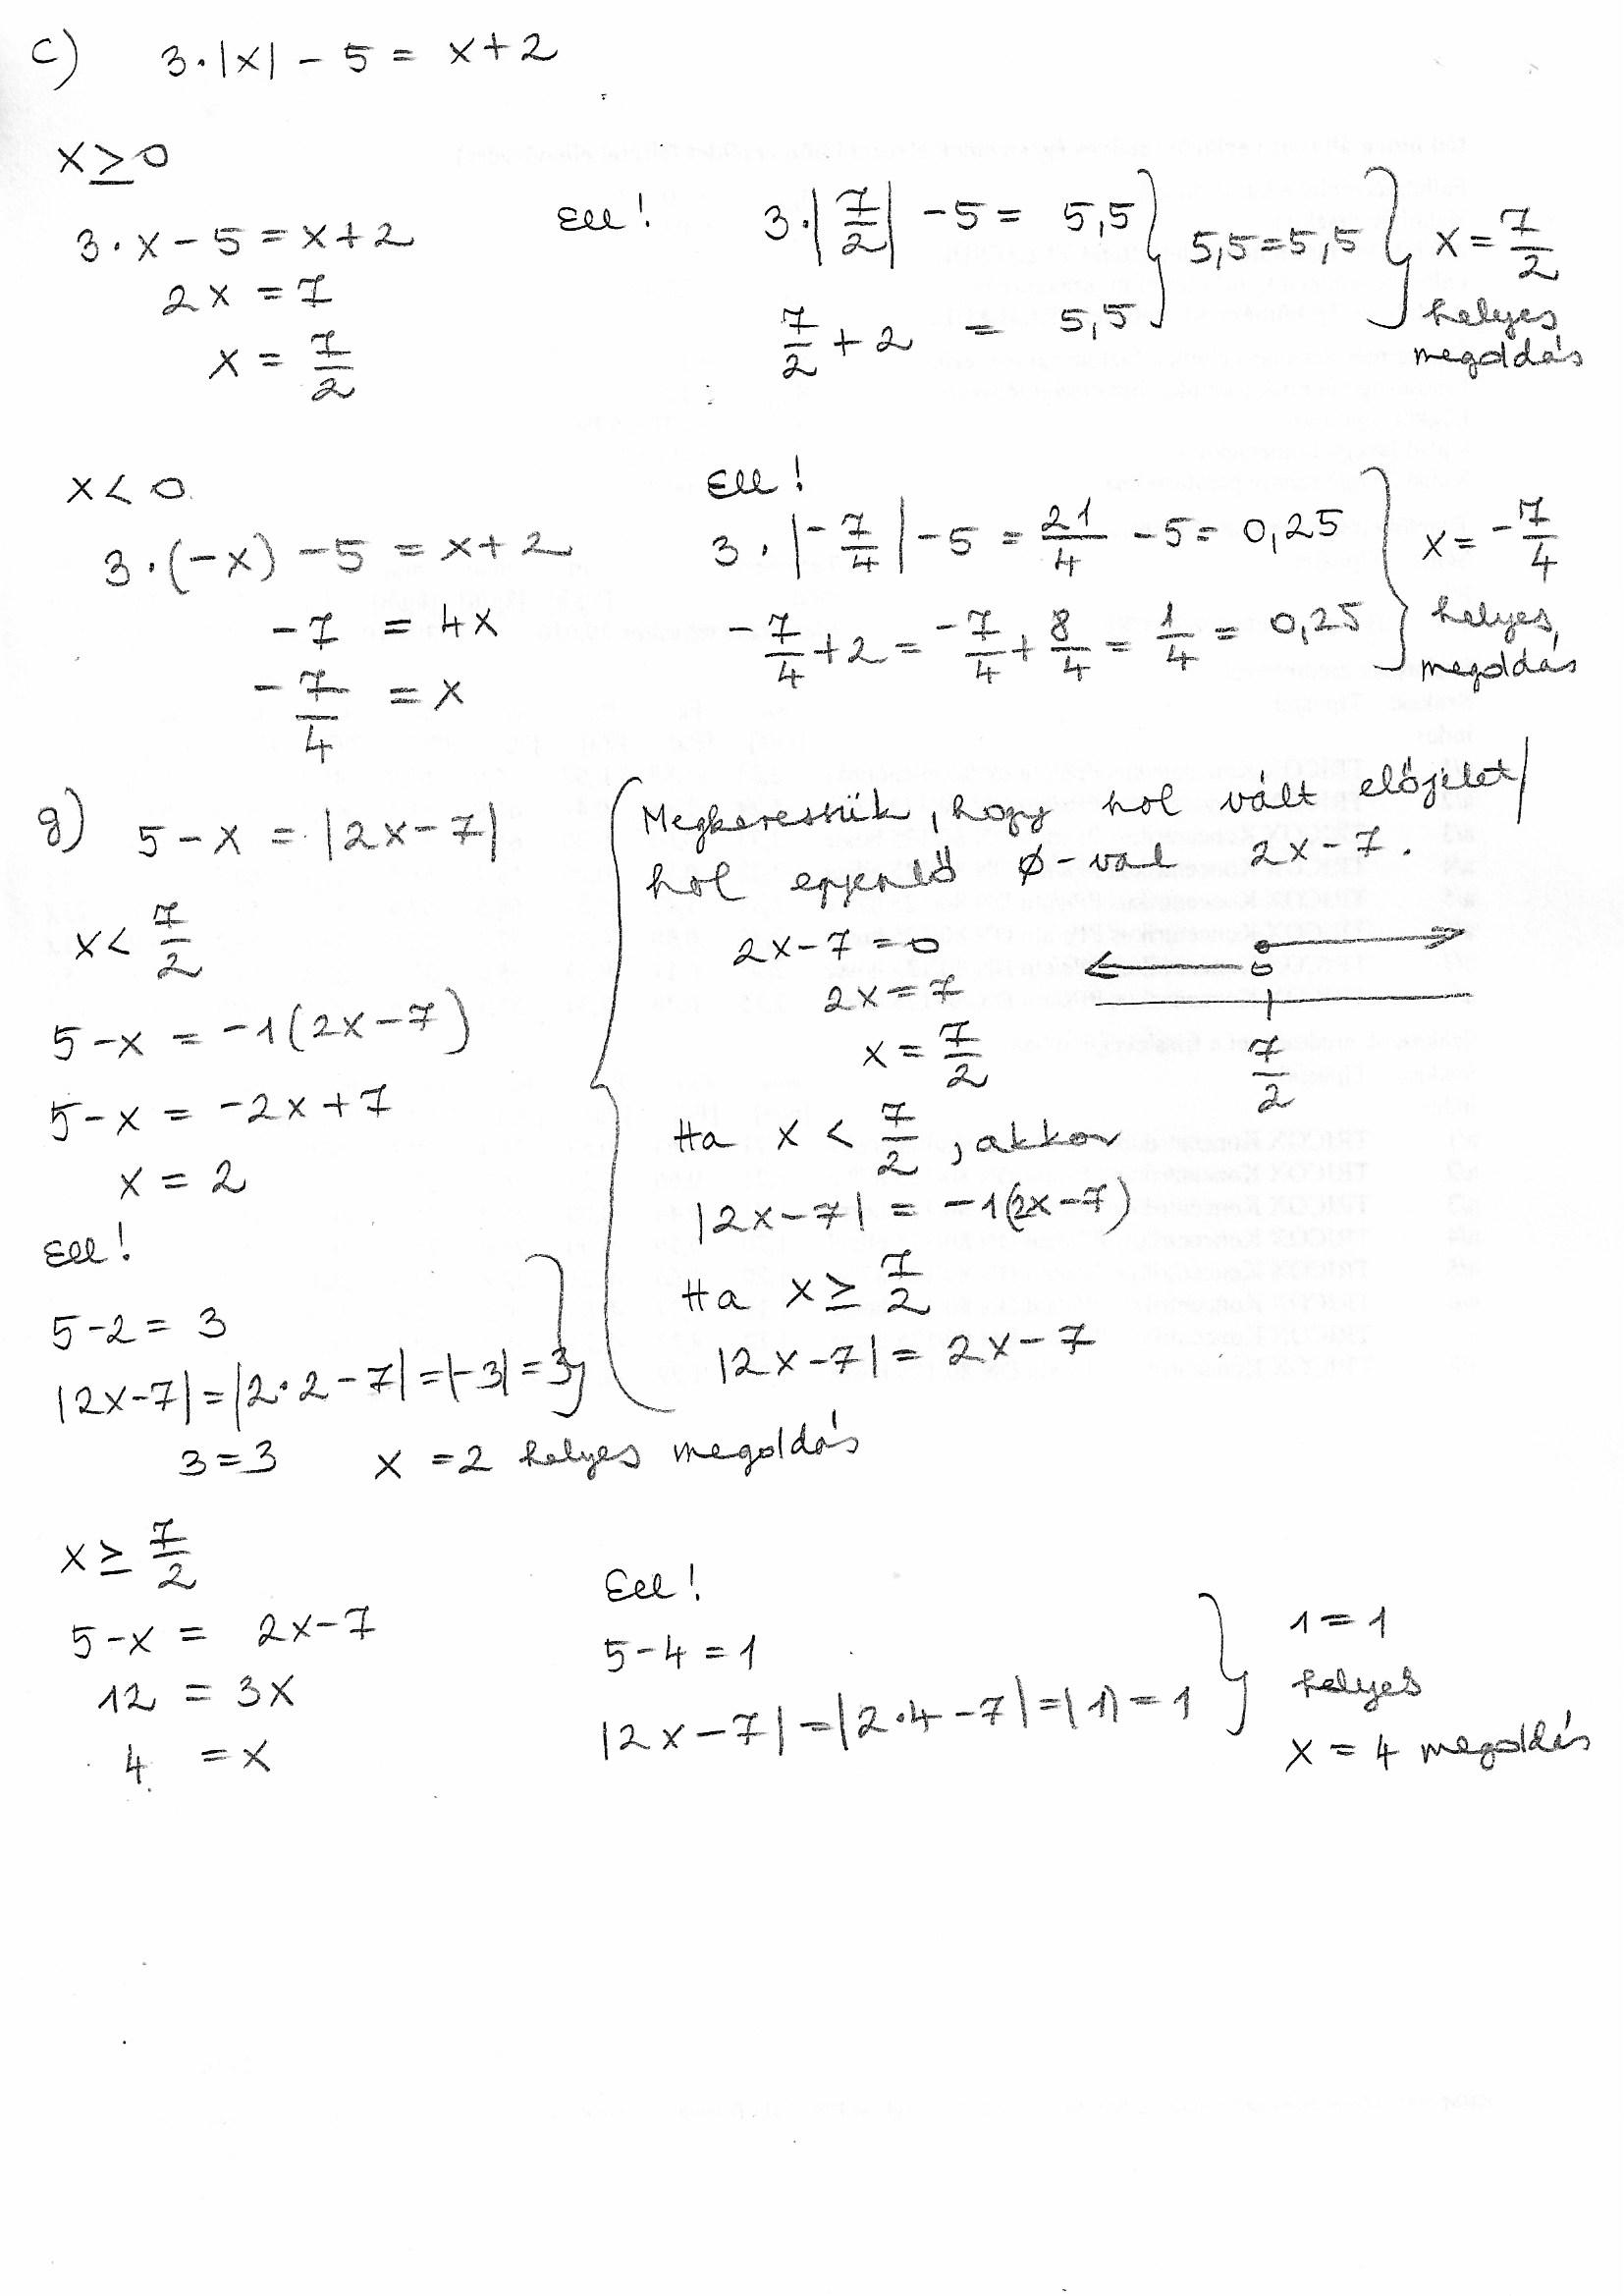 c) 3·|x| - 5 = x+2
x ≥ 0
3·x - 5 = x+2
2x = 7
x = 7/2
Ell! 3·|7/2| - 5 = 5,5
7/2 + 2 = 5,5
5,5 = 5,5
x = 7/2
helyes
megoldás
x < 0
3·(-x) - 5 = x+2
-7 = 4x
-7/4 = x
Ell!
3·|-7/4| - 5 = 21/4 - 5 = 0,25
-7/4 + 2 = -7/4 + 8/4 = 1/4 = 0,25
x = -7/4
helyes
megoldás
g) 5 - x = |2x - 7|
x < 7/2
5 - x = -1(2x - 7)
5 - x = -2x + 7
x = 2
Ell!
5 - 2 = 3
|2x - 7| = |2·2 - 7| = |-3| = 3
3 = 3 x = 2 helyes megoldás
Megkeressük, hogy hol vált előjelet/
hol egyenlő Ø-val 2x - 7.
2x - 7 = 0
2x = 7
x = 7/2
7/2
Ha x < 7/2, akkor
|2x - 7| = -1(2x - 7)
Ha x ≥ 7/2
|2x - 7| = 2x - 7
x ≥ 7/2
5 - x = 2x - 7
12 = 3x
4 = x
Ell!
5 - 4 = 1
|2x - 7| = |2·4 - 7| = |1| = 1
1 = 1
helyes
x = 4 megoldás